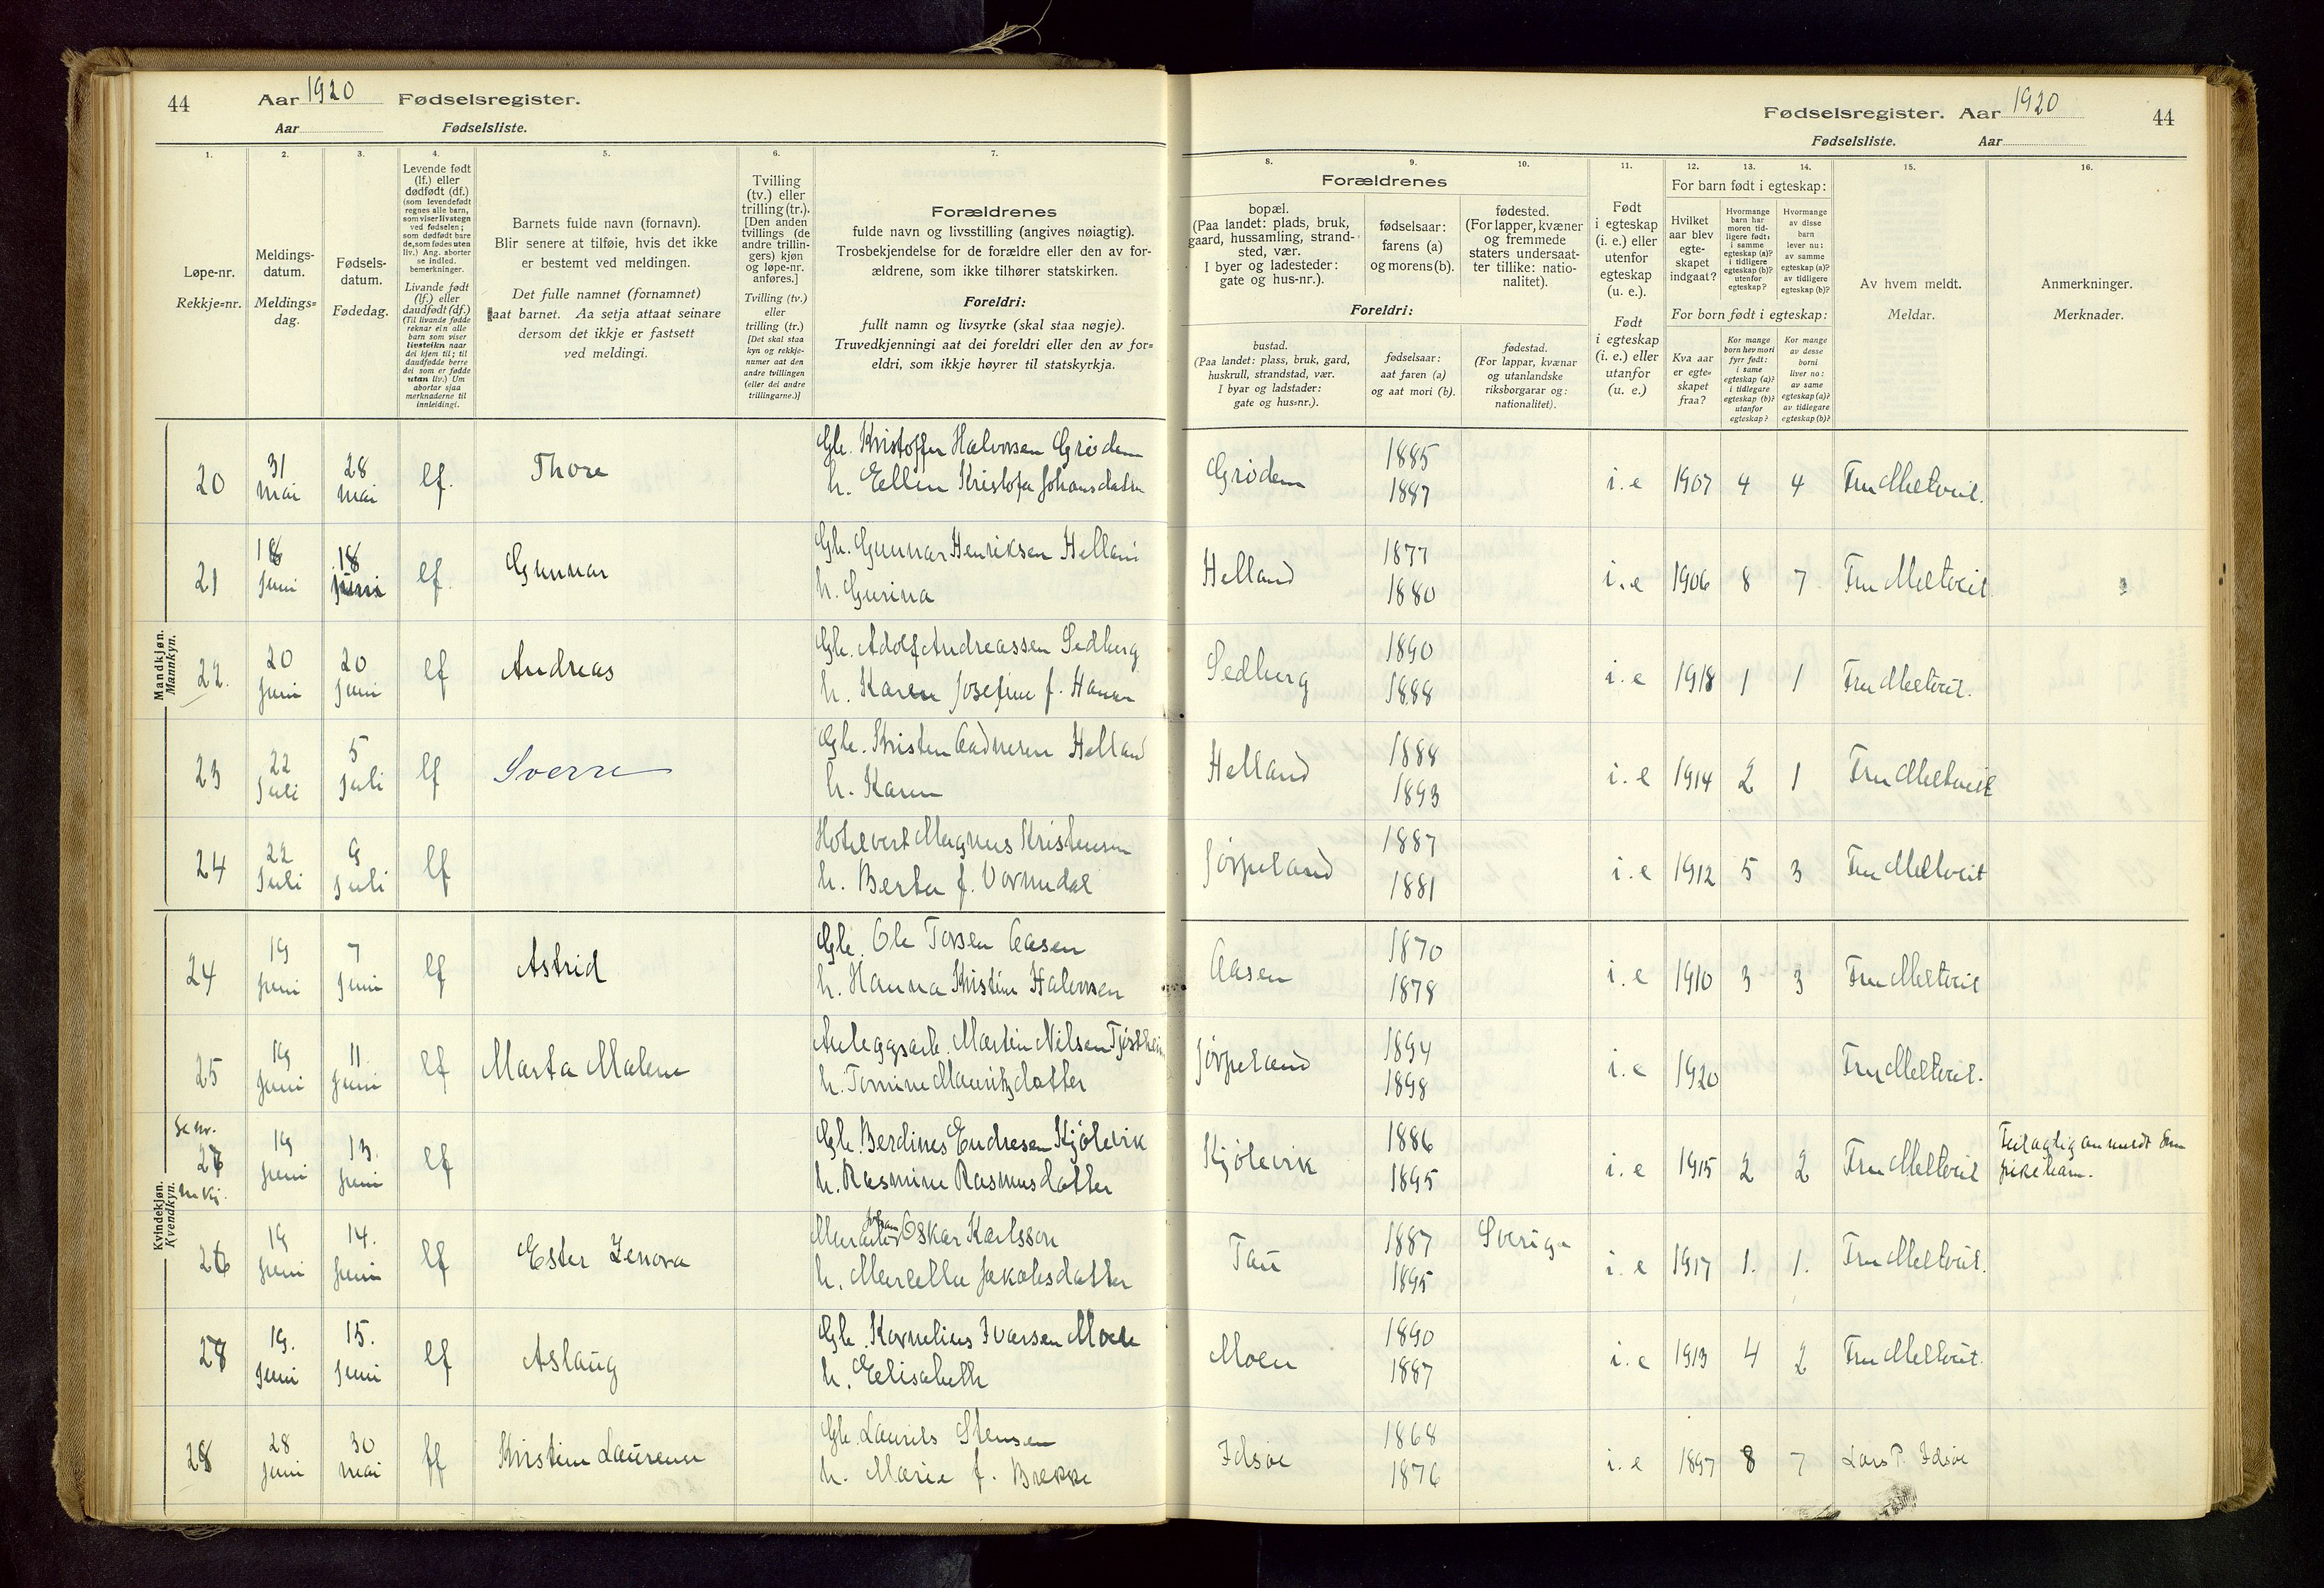 44 Aar 1920 Fødselsregister.
Aar Fødselsliste.
1. 2. 3. 4. 5. 6. 7.
Løpe-nr.
Rekkje=nr.
Meldings-
datum.
Meldings=
dag.
Fødsels-
datum.
Fødedag.
Levende født
(lf.) eller
dødfødt (df.)
(som levendefødt
regnes alle barn,
som viser livstegn
ved fødselen;
som dødfødt bare
de, som fødes uten
liv.) Ang. aborter
se indled.
bemerkninger.
Livande født
(lf.) eller
daudfødt (df.)
(Til livande fødde
reknar ein alle
barn som viser
livsteikn naar
dei kjem til; til
daudfødde berre
dei som er fødde
utan liv.) Um
abortar sjaa
merknaderne til
innleidingi.
Barnets fulde navn (fornavn).
Blir senere at tilføie, hvis det ikke
er bestemt ved meldingen.
Det fulle namnet (fornamnet)
aat barnet. Aa setja attaat seinare
dersom det ikkje er fastsett
ved meldingi.
Tvilling
(tv.) eller
trilling (tr.).
[Den anden
tvillings (de
andre trillin-
gers) kjøn
og løpe-nr.
anføres.]
Tvilling (tv.)
eller
trilling (tr.)
[Det skal staa
kyn og rekkje-
numer aat den
andre tvillingen
(eller dei andre
trillingarne.)]
Forældrenes
fulde navn og livsstilling (angives nøiagtig).
Trosbekjendelse for de forældre eller den av for-
ældrene, som ikke tilhører statskirken.
Foreldri:
fullt namn og livsyrke (skal staa nøgje).
Truvedkjenningi aat dei foreldri eller den av for=
eldri, som ikkje høyrer til statskyrkja.
Mandkjøn.
Mannkyn.
20 31 mai 28 mai lf. Thore Gb. Kristoffer Halvorsen Grødem
h. Ellen Kristofa Johansdatter
21 18 juni 18 juni lf. Gunnar Gb. Gunnar Henriksen Helland
h. Gurina
22. 20 juni 20 juni lf Andreas Gb. Adolf Andreassen Sedberg
h. Karen Josefine f. Hansen
23 22 juli 5 juli lf Sverre Gb. Kristen Aadnesen Helland
h. Karen
24 22 juli 9 juli lf Hotelvert Magnus Kristensen
h. Berta f. Vormedal
Kvindekjøn.
Kvendkyn.
24 19 juni 7 juni lf Astrid Gb. Ole Torsen Aasen
h. Hanna Kristine Halvorsen
25 19 juni 11. juni lf Marta Malene Anleggsarb. Martin Nilsen Tjøstheim
h. Tomine Mauritzdatter
Se nr. 19 juni 13. juni lf Gb. Berdines Endresen Kjølevik
m.kj. h. Rasmine Rasmusdatter
26 19 juni 14. juni lf Ester Zenora Johan Oskar Karlsson
h. Marcella Jakobsdatter
27 19. juni 15. juni lf Aslaug Gb. Kornelius Ivarsen Moen
h. Elisabeth
28 28 juni 30 mai lf Kristine Laurense Gb. Laurits Stensen
h. Marie f. Brekke
Fødselsregister. Aar 1920 44
Fødselsliste. Aar
8. 9. 10. 11. 12. 13. 14. 15. 16.
Forældrenes
bopæl.
(Paa landet: plads, bruk,
gaard, hussamling, strand-
sted, vær.
I byer og ladesteder:
gate og hus-nr.).
fødselsaar:
farens (a)
og morens (b).
fødested.
(For lapper, kvæner
og fremmede
staters undersaat-
ter tillike: natio-
nalitet).
Foreldri:
bustad.
(Paa landet: plass, bruk, gard,
huskrull, strandstad, vær.
I byar og ladstader:
gate og hus=nr.).
fødselsaar:
aat faren (a)
og aat mori (b).
fødestad.
(For lappar, kvænar
og utanlandske
riksborgarar og:
nationalitet).
Født
i egteskap
(i. e.) eller
utenfor
egteskap
(u. e.).
Født
i egteskap
(i. e.) eller
utanfor
(u. e.)
For barn født i egteskap:
Hvilket
aar blev
egte-
skapet
indgaat?
Hvormange
barn har
moren tid-
ligere født:
i samme
egteskap (a)?
i tidligere
egteskap (b)?
utenfor
egteskap?
Hvormange
av disse
barn
lever nu:
av samme
egteskap (a)?
av tidligere
egteskap (b)?
For born født i egteskap:
Kva aar
er egte=
skapet
fraa?
Kor mange
born hev mori
fyrr født:
i same
egteskap (a)?
i tidlegare
egteskap (b)?
utanfor
egteskap?
Kor mange
av desse
borni
liver no:
av same
egteskap (a)?
av tidlegare
egteskap (b)?
Av hvem meldt.
Meldar.
Anmerkninger.
Merknader.
Grødem 1885 1887 i. e 1907 4 4 Fru Meltveit.
Helland 1877 1880 i. e 1906 8 7 Fru Meltveit
Sedberg 1890 1888 i. e 1918 1 1 Fru Meltveit.
Helland 1888 1893 i. e 1914 2 1 Fru Meltveit
Jørpeland 1887 1881 i. e 1912 5 3 Fru Meltveit
Aasen 1870 1878 i. e 1910 3 3 Fru Meltveit
Jørpeland 1894 1898 i. e 1920 Fru Meltveit.
Kjølevik 1886 1895 i. e 1915 2 2 Fru Meltveit Feilagtig anmeldt som
pikebarn.
Tau 1887 1895 Sverige i. e 1917 1. 1. Fru Meltveit.
Moen 1890 1887 i. e 1913 4 2 Fru Meltveit.
Idsøe 1868 1876 i. e 1897 8 7 Lars P. Idsøe